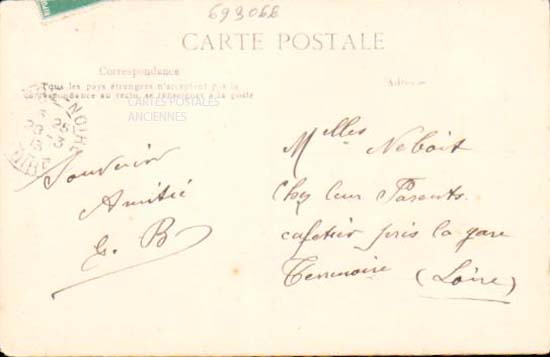 693066
CARTE POSTALE
Correspondance
Tous les pays étrangers n'acceptent pas la
correspondance au recto, se renseigner à la poste
Adresse
CARTES POSTALES
ANCIENNES
NOIRE
25
LOIRE
Souvenir
Amitié
G. B
Mlles Neboit
Chez leur Parents
cafetier près la gare
Terrenoire (Loire)